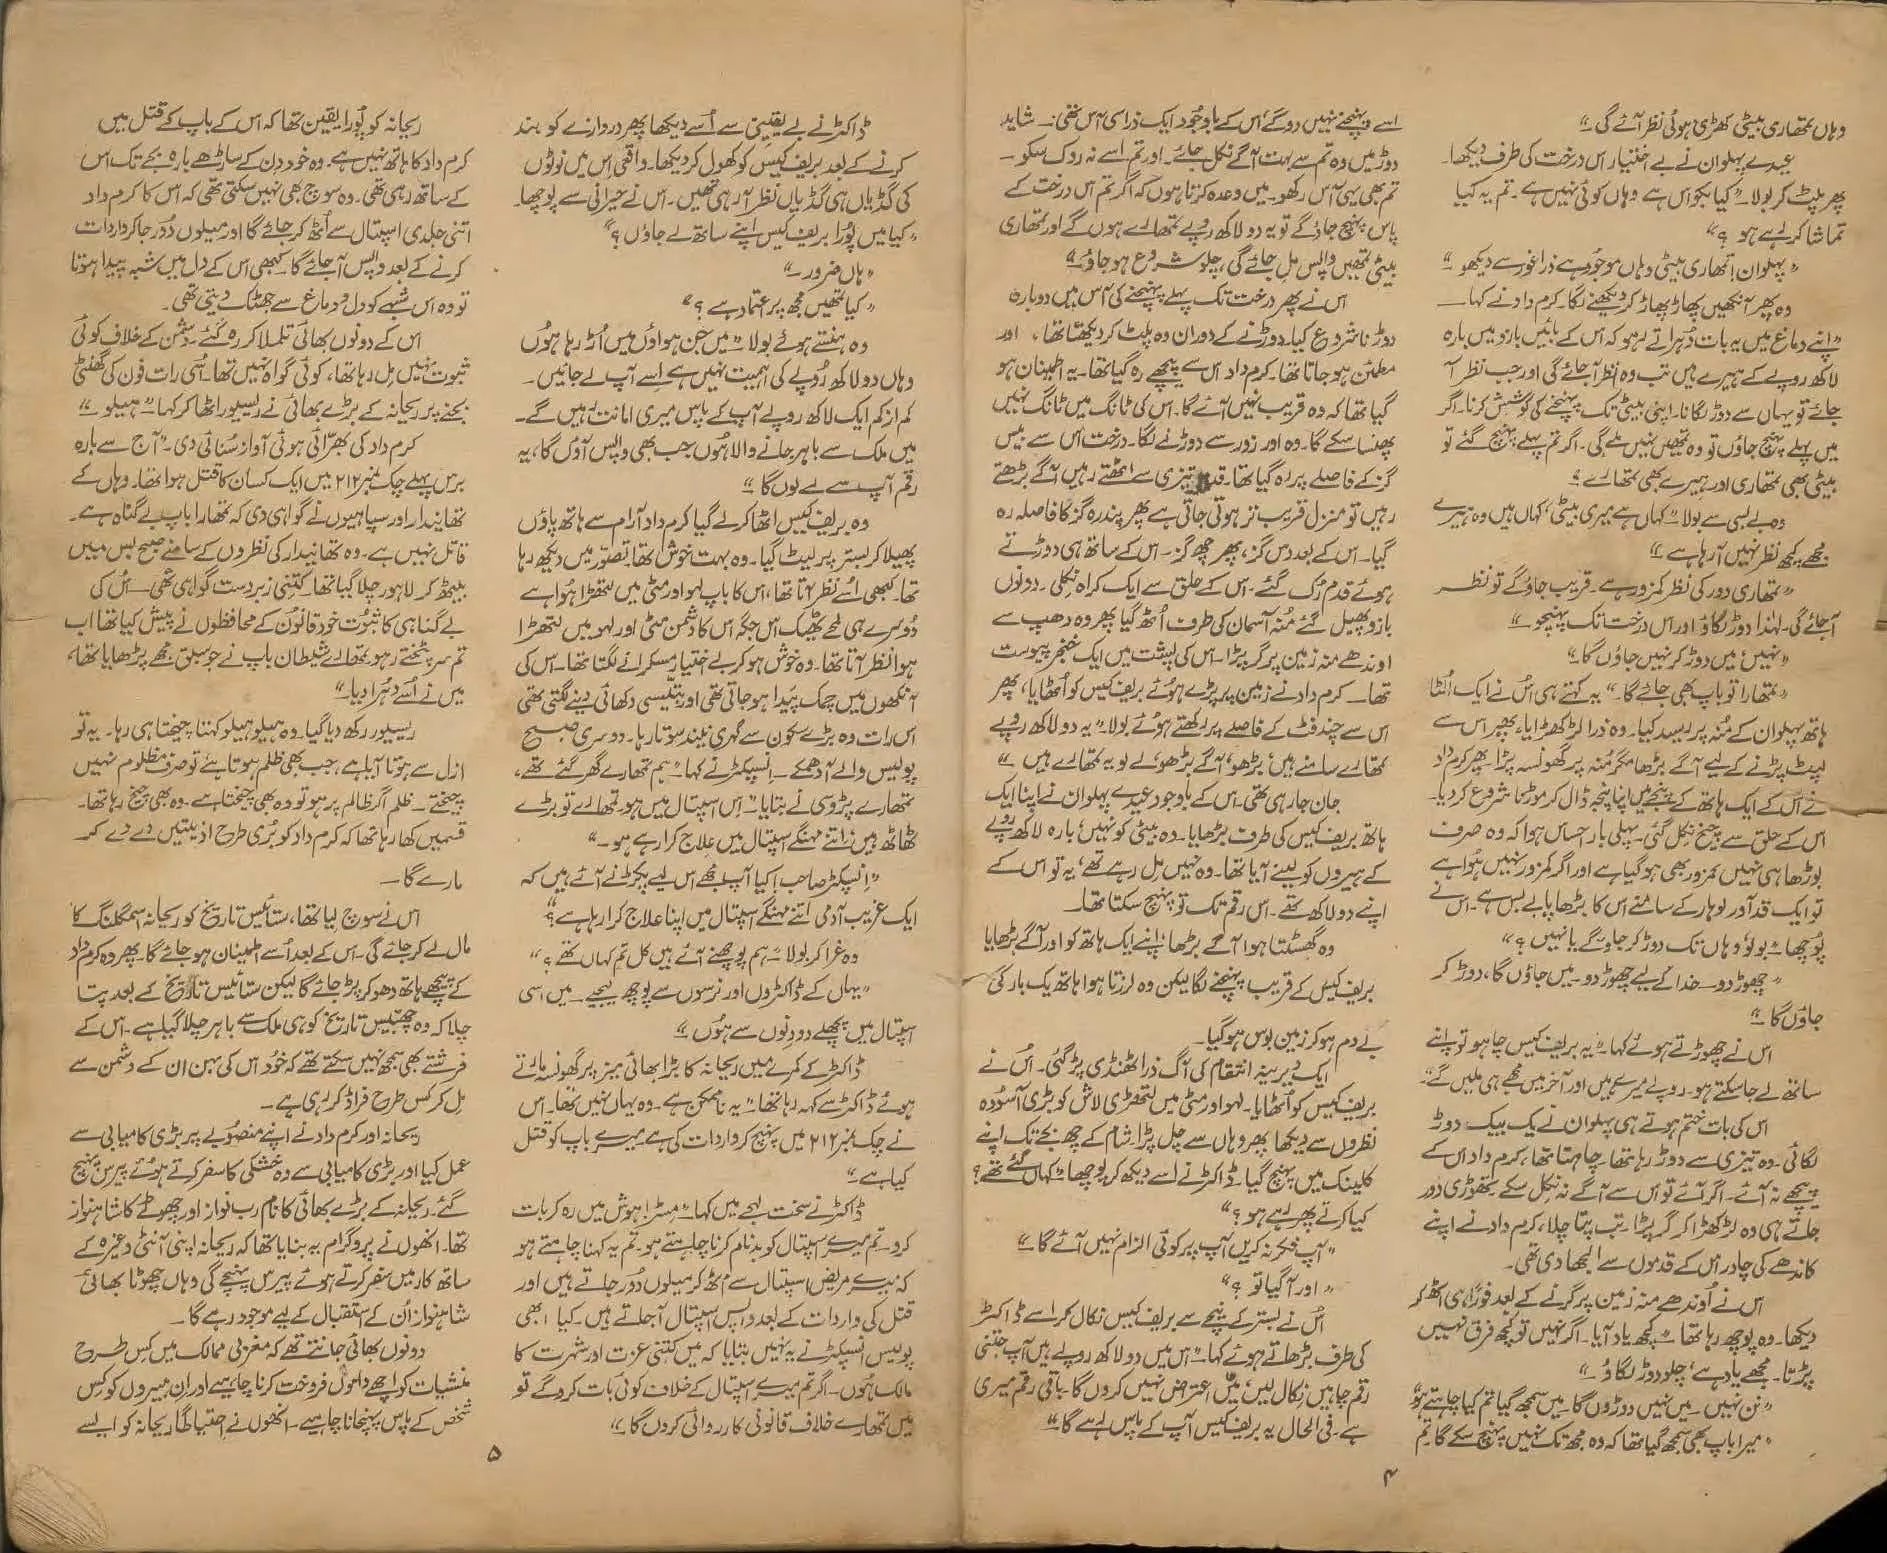 وہاں تمھاری بیٹی کھڑی ہوئی نظر آئے گی۔“
عیدے پہلوان نے بے اختیار اس درخت کی طرف دیکھا۔
پھر پلٹ کر بولا۔ ”کیا بکواس ہے وہاں کوئی نہیں ہے۔ تم یہ کیا
تماشا کر رہے ہو؟“
”پہلوان! تمھاری بیٹی وہاں موجود ہے ذرا غور سے دیکھو۔“
وہ پھر آنکھیں پھاڑ پھاڑ کر دیکھنے لگا۔ کرم داد نے کہا۔
”اپنے دماغ میں یہ بات دُہراتے رہو کہ اس کے بائیں بازو میں بارہ
لاکھ روپے کے ہیرے ہیں تب وہ نظر آ جائے گی اور جب نظر آ
جائے تو یہاں سے دوڑ لگانا۔ اپنی بیٹی تک پہنچنے کی کوشش کرنا۔ اگر
میں پہلے پہنچ جاؤں تو وہ تمھیں نہیں ملے گی۔ اگر تم پہلے پہنچ گئے تو
بیٹی بھی تمھاری اور ہیرے بھی تمھارے۔“
وہ بے بسی سے بولا۔ ”کہاں ہے میری بیٹی، کہاں ہیں وہ ہیرے
مجھے کچھ نظر نہیں آ رہا ہے۔“
”تمھاری دور کی نظر کمزور ہے۔ قریب جاؤ گے تو نظر
آ جائے گی۔ لہٰذا دوڑ لگاؤ اور اس درخت تک پہنچو۔“
”نہیں، میں دوڑ کر نہیں جاؤں گا۔“
”تمھارا تو باپ بھی جائے گا۔“ یہ کہتے ہی اُس نے ایک اُلٹا
ہاتھ پہلوان کے مُنہ پر رسید کیا۔ وہ ذرا لڑکھڑایا، پھر اس سے
لپٹ پڑنے کے لیے آگے بڑھا مگر مُنہ پر گھونسہ پڑا۔ پھر کرم داد
نے اس کے ایک ہاتھ کے پنجے میں اپنا پنجہ ڈال کر موڑنا شروع کر دیا۔
اس کے حلق سے چیخ نکل گئی۔ پہلی بار احساس ہوا کہ وہ صرف
بوڑھا ہی نہیں کمزور بھی ہو گیا ہے اور اگر کمزور نہیں ہُوا ہے
تو ایک قد آور لوہار کے سامنے اس کا بڑھاپا بے بس ہے۔ اس نے
پُوچھا۔ ”بولو، وہاں تک دوڑ کر جاؤ گے یا نہیں؟“
”چھوڑ دو۔ خدا کے لیے چھوڑ دو۔ میں جاؤں گا، دوڑ کر
جاؤں گا۔“
اس نے چھوڑتے ہوئے کہا۔ ”یہ بریف کیس چاہو تو اپنے
ساتھ لے جا سکتے ہو۔ روپے میرے ہیں اور آخر میں مجھے ہی ملیں گے۔“
اس کی بات ختم ہوتے ہی پہلوان نے یک بیک دوڑ
لگائی۔ وہ تیزی سے دوڑ رہا تھا۔ چاہتا تھا، کرم داد اس کے
پیچھے نہ آئے۔ اگر آئے تو اس سے آگے نہ نکل سکے۔ تھوڑی دور
جاتے ہی وہ لڑکھڑا کر گر پڑا۔ تب پتا چلا، کرم داد نے اپنے
کاندھے کی چادر اس کے قدموں سے اُلجھا دی تھی۔
اس نے اُوندھے منہ زمین پر گرنے کے بعد فوراً ہی اٹھ کر
دیکھا۔ وہ پوچھ رہا تھا۔ ”کچھ یاد آیا۔ اگر نہیں تو کچھ فرق نہیں
پڑتا۔ مجھے یاد ہے، چلو دوڑ لگاؤ۔“
”نن نہیں۔ میں نہیں دوڑوں گا۔ میں سمجھ گیا تم کیا چاہتے ہو۔“
”میرا باپ بھی سمجھ گیا تھا کہ وہ مجھ تک نہیں پہنچ سکے گا۔ تم
۴
اسے پہنچنے نہیں دو گے، اس کے باوجود ایک ذرا سی آس تھی۔ شاید
دوڑ میں وہ تم سے بہت آگے نکل جائے۔ اور تم اسے نہ روک سکو۔
تم بھی یہی آس رکھو۔ میں وعدہ کرتا ہوں کہ اگر تم اس درخت کے
پاس پہنچ جاؤ گے تو یہ دو لاکھ روپے تمھارے ہوں گے اور تمھاری
بیٹی تمھیں واپس مل جائے گی، چلو شروع ہو جاؤ۔“
اس نے پھر درخت تک پہلے پہنچنے کی آس میں دوبارہ
دوڑنا شروع کیا۔ دوڑنے کے دوران وہ پلٹ کر دیکھتا تھا، اور
مطمئن ہو جاتا تھا۔ کرم داد اس سے پیچھے رہ گیا تھا۔ یہ اطمینان ہو
گیا تھا کہ وہ قریب نہیں آئے گا۔ اس کی ٹانگ میں ٹانگ نہیں
پھنسا سکے گا۔ وہ اور زور سے دوڑنے لگا۔ درخت اُس سے بیس
گز کے فاصلے پر رہ گیا تھا۔ قدم تیزی سے اٹھتے رہیں آگے بڑھتے
رہیں تو منزل قریب تر ہوتی جاتی ہے پھر پندرہ گز کا فاصلہ رہ
گیا۔ اس کے بعد دس گز، پھر چھ گز۔ اس کے ساتھ ہی دوڑتے
ہوئے قدم رُک گئے۔ اس کے حلق سے ایک کراہ نکلی۔ دونوں
بازو پھیل گئے مُنہ آسمان کی طرف اُٹھ گیا پھر وہ دھپ سے
اوندھے منہ زمین پر گر پڑا۔ اس کی پشت میں ایک خنجر پیوست
تھا۔ کرم داد نے زمین پر پڑے ہوئے بریف کیس کو اُٹھایا، پھر
اس سے چند فٹ کے فاصلے پر رکھتے ہوئے بولا۔ ”یہ دو لاکھ روپے
تمھارے سامنے ہیں، بڑھو، آگے بڑھو، لے لو یہ تمھارے ہیں۔“
جان جا رہی تھی۔ اس کے باوجود عیدے پہلوان نے اپنا ایک
ہاتھ بریف کیس کی طرف بڑھایا۔ وہ بیٹی کو نہیں، بارہ لاکھ روپے
کے ہیروں کو لینے آیا تھا۔ وہ نہیں مل رہے تھے، یہ تو اس کے
اپنے دو لاکھ تھے۔ اس رقم تک تو پہنچ سکتا تھا۔
وہ گھسٹتا ہوا آگے بڑھا، اپنے ایک ہاتھ کو اور آگے بڑھایا
بریف کیس کے قریب پہنچنے لگا لیکن وہ لرزتا ہوا ہاتھ یک بارگی
بے دم ہو کر زمین بوس ہو گیا۔
ایک دیرینہ انتقام کی آگ ذرا ٹھنڈی پڑ گئی۔ اُس نے
بریف کیس کو اُٹھایا۔ لہو اور مٹی میں لتھڑی لاش کو بڑی آسودہ
نظروں سے دیکھا پھر وہاں سے چل پڑا۔ شام کے چھ بجے تک اپنے
کلینک میں پہنچ گیا۔ ڈاکٹر نے اسے دیکھ کر پوچھا۔ ”کہاں گئے تھے؟
کیا کرتے پھر رہے ہو؟“
”آپ فکر نہ کریں آپ پر کوئی الزام نہیں آئے گا۔“
”اور آ گیا تو؟“
اُس نے بستر کے نیچے سے بریف کیس نکال کر اسے ڈاکٹر
کی طرف بڑھاتے ہوئے کہا۔ ”اس میں دو لاکھ روپے ہیں آپ جتنی
رقم چاہیں نکال لیں، میں اعتراض نہیں کروں گا۔ باقی رقم میری
ہے۔ فی الحال یہ بریف کیس آپ کے پاس رہے گا۔“
ڈاکٹر نے بے یقینی سے اُسے دیکھا پھر دروازے کو بند
کرنے کے بعد بریف کیس کو کھول کر دیکھا۔ واقعی اس میں نوٹوں
کی گڈیاں ہی گڈیاں نظر آ رہی تھیں۔ اس نے حیرانی سے پوچھا۔
”کیا میں پُورا بریف کیس اپنے ساتھ لے جاؤں؟“
”ہاں ضرور۔“
”کیا تمھیں مجھ پر اعتماد ہے؟“
وہ ہنستے ہوئے بولا۔ ”میں جن ہواؤں میں اُڑ رہا ہوں
وہاں دو لاکھ روپے کی اہمیت نہیں ہے اِسے آپ لے جائیں۔
کم از کم ایک لاکھ روپے آپ کے پاس میری امانت رہیں گے۔
میں ملک سے باہر جانے والا ہُوں جب بھی واپس آؤں گا، یہ
رقم آپ سے لے لوں گا۔“
وہ بریف کیس اٹھا کر لے گیا کرم داد آرام سے ہاتھ پاؤں
پھیلا کر بستر پر لیٹ گیا۔ وہ بہت خوش تھا۔ تصّور میں دیکھ رہا
تھا۔ کبھی اُسے نظر آتا تھا، اس کا باپ لہو اور مٹی میں لتھڑا ہُوا ہے
دُوسرے ہی لمحے ٹھیک اس جگہ اس کا دشمن مٹی اور لہو میں لتھڑا
ہوا نظر آتا تھا۔ وہ خوش ہو کر بے اختیار مسکرانے لگتا تھا۔ اس کی
آنکھوں میں چمک پیدا ہو جاتی تھی اور بتّیسی دکھائی دینے لگتی تھی
اس رات وہ بڑے سکون سے گہری نیند سوتا رہا۔ دوسری صبح
پولیس والے آ دھمکے۔ انسپکٹر نے کہا۔ ”ہم تمھارے گھر گئے تھے،
تمھارے پڑوسی نے بتایا۔ اِس اسپتال میں ہو، تمھارے تو بڑے
ٹھاٹھ ہیں، اتنے مہنگے اسپتال میں علاج کرا رہے ہو۔“
”انسپکٹر صاحب! کیا آپ مجھے اس لیے پکڑنے آئے ہیں کہ
ایک غریب آدمی اتنے مہنگے اسپتال میں اپنا علاج کرا رہا ہے؟“
وہ غرا کر بولا۔ ”ہم پوچھنے آئے ہیں کل تم کہاں تھے؟“
”یہاں کے ڈاکٹروں اور نرسوں سے پوچھ لیجیے۔ میں اسی
اسپتال میں پچھلے دو دنوں سے ہُوں۔“
ڈاکٹر کے کمرے میں ریحانہ کا بڑا بھائی میز پر گھونسہ مارتے
ہوئے ڈاکٹر سے کہہ رہا تھا۔ ”یہ ناممکن ہے۔ وہ یہاں نہیں تھا۔ اس
نے چک نمبر ۲۱۲ میں پہنچ کر واردات کی ہے میرے باپ کو قتل
کیا ہے۔“
ڈاکٹر نے سخت لہجے میں کہا۔ ”مسٹر! ہوش میں رہ کر بات
کرو۔ تم میرے اسپتال کو بدنام کرنا چاہتے ہو۔ تم یہ کہنا چاہتے ہو
کہ میرے مریض اسپتال سے اٹھ کر میلوں دُور جاتے ہیں اور
قتل کی واردات کے بعد واپس اسپتال آ جاتے ہیں۔ کیا ابھی
پولیس انسپکٹر نے یہ نہیں بتایا کہ میں کتنی عزت اور شہرت کا
مالک ہُوں۔ اگر تم میرے اسپتال کے خلاف کوئی بات کرو گے تو
میں تمھارے خلاف قانونی کارروائی کروں گا۔“
ریحانہ کو پُورا یقین تھا کہ اس کے باپ کے قتل میں
کرم داد کا ہاتھ نہیں ہے۔ وہ خود دن کے ساڑھے بارہ بجے تک اس
کے ساتھ رہی تھی۔ وہ سوچ بھی نہیں سکتی تھی کہ اس کا کرم داد
اتنی جلدی اسپتال سے اُٹھ کر جائے گا اور میلوں دُور جا کر واردات
کرنے کے بعد واپس آ جائے گا۔ کبھی اس کے دل میں شبہ پیدا ہوتا
تو وہ اس شبہے کو دل و دماغ سے جھٹک دیتی تھی۔
اس کے دونوں بھائی تلملا کر رہ گئے۔ دشمن کے خلاف کوئی
ثبوت نہیں مل رہا تھا، کوئی گواہ نہیں تھا۔ اُسی رات فون کی گھنٹی
بجنے پر ریحانہ کے بڑے بھائی نے ریسیور اٹھا کر کہا۔ ”ہیلو۔“
کرم داد کی بھرّائی ہوئی آواز سُنائی دی۔ ”آج سے بارہ
برس پہلے چک نمبر ۲۱۲ میں ایک کسان کا قتل ہوا تھا۔ وہاں کے
تھانیدار اور سپاہیوں نے گواہی دی کہ تمھارا باپ بے گناہ ہے۔
قاتل نہیں ہے۔ وہ تھانیدار کی نظروں کے سامنے صبح بس میں
بیٹھ کر لاہور چلا گیا تھا۔ کتنی زبردست گواہی تھی۔ اُس کی
بے گناہی کا ثبوت خود قانون کے محافظوں نے پیش کیا تھا اب
تم سر پٹختے رہو، تمھارے شیطان باپ نے جو سبق مجھے پڑھایا تھا،
میں نے اُسے دُہرا دیا۔“
ریسیور رکھ دیا گیا۔ وہ ہیلو ہیلو کہتا چیختا ہی رہا۔ یہ تو
ازل سے ہوتا آیا ہے، جب بھی ظلم ہوتا ہے تو صرف مظلوم نہیں
چیختے۔ ظلم اگر ظالم پر ہو تو وہ بھی چیختا ہے۔ وہ بھی چیخ رہا تھا۔
قسمیں کھا رہا تھا کہ کرم داد کو بُری طرح اذیتیں دے دے کر
مارے گا۔
اس نے سوچ لیا تھا، ستائیس تاریخ کو ریحانہ اسمگلنگ کا
مال لے کر جائے گی۔ اس کے بعد اُسے اطمینان ہو جائے گا۔ پھر وہ کرم داد
کے پیچھے ہاتھ دھو کر پڑ جائے گا لیکن ستائیس تاریخ کے بعد پتا
چلا کہ وہ چھبیس تاریخ کو ہی ملک سے باہر چلا گیا ہے۔ اس کے
فرشتے بھی سمجھ نہیں سکتے تھے کہ خود اس کی بہن ان کے دشمن سے
مل کر کس طرح فراڈ کر رہی ہے۔
ریحانہ اور کرم داد نے اپنے منصوبے پر بڑی کامیابی سے
عمل کیا اور بڑی کامیابی سے وہ خشکی کا سفر کرتے ہوئے پیرس پہنچ
گئے۔ ریحانہ کے بڑے بھائی کا نام رب نواز اور چھوٹے کا شاہنواز
تھا۔ انھوں نے پروگرام یہ بنایا تھا کہ ریحانہ اپنی آنٹی وغیرہ کے
ساتھ کار میں سفر کرتے ہوئے پیرس پہنچے گی وہاں چھوٹا بھائی
شاہنواز اُن کے استقبال کے لیے موجود رہے گا۔
دونوں بھائی جانتے تھے کہ مغربی ممالک میں کس طرح
منشیات کو اچھے داموں فروخت کرنا چاہیے اور ان ہیروں کو کِس
شخص کے پاس پہنچانا چاہیے۔ انھوں نے احتیاطاً ریحانہ کو ایسے
۵